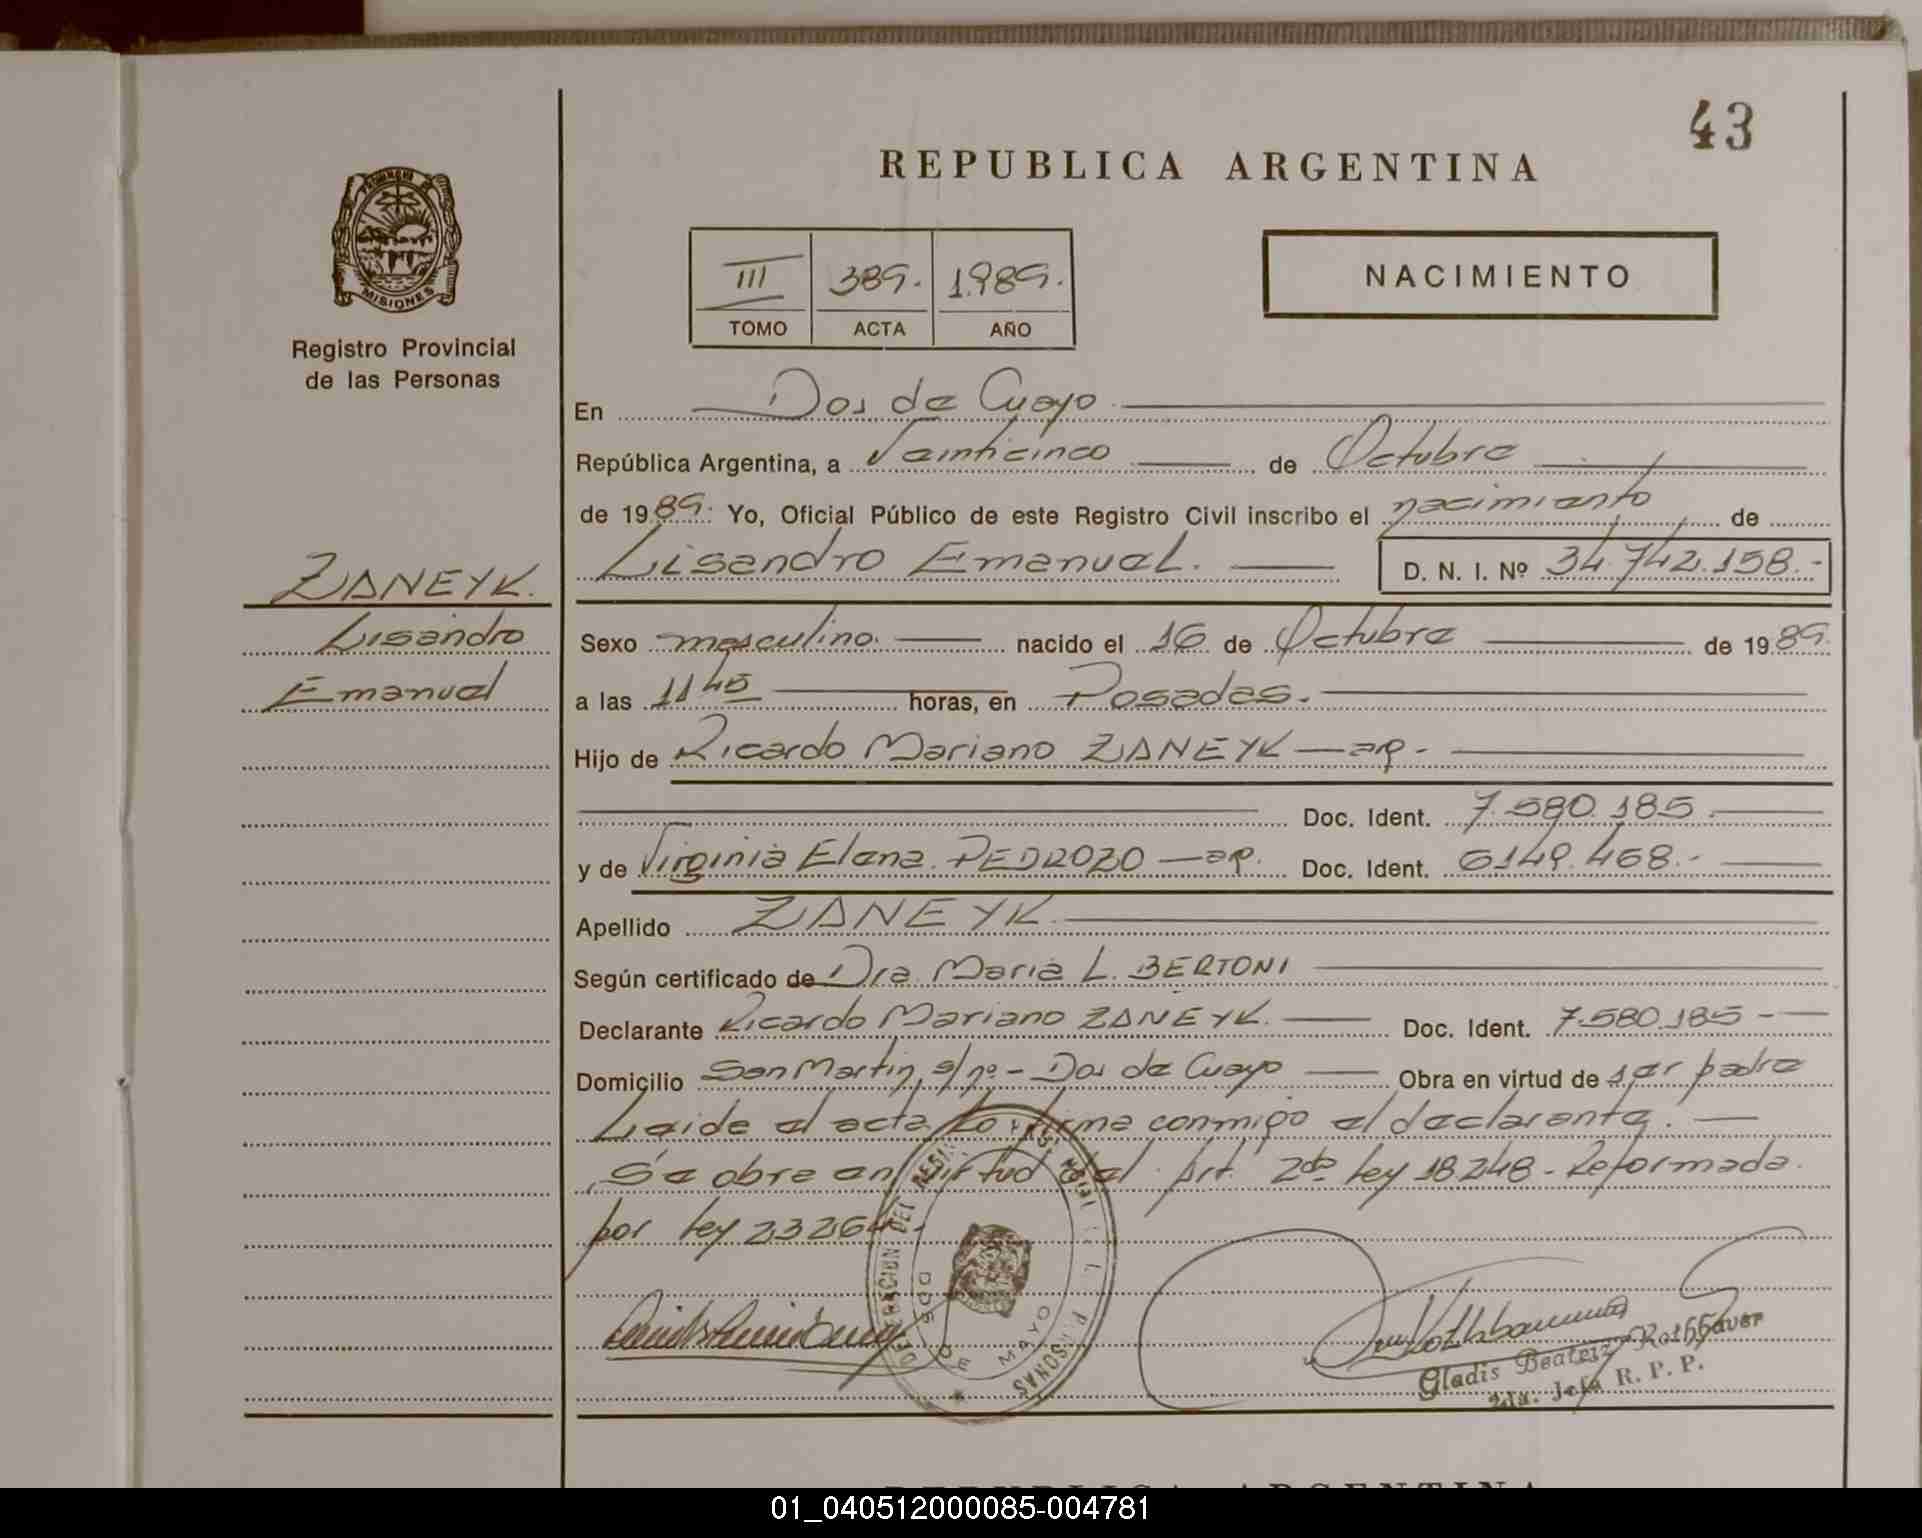 43
REPUBLICA ARGENTINA
PROVINCIA DE
MISIONES
Registro Provincial
de las Personas
III 389. 1.989.
TOMO ACTA AÑO
NACIMIENTO
En Dos de Mayo
República Argentina, a Veinticinco de Octubre
de 1989. Yo, Oficial Público de este Registro Civil inscribo el nacimiento de
Lisandro Emanuel. D. N. I. Nº 34.742.158.-
ZANEYK.
Lisandro
Emanuel
Sexo masculino. nacido el 16 de Octubre de 1989.
a las 11 45 horas, en Posadas.
Hijo de Ricardo Mariano ZANEYK — ar -
Doc. Ident. 7.580.185
y de Virginia Elena PEDROZO — ar. Doc. Ident. 6149.468.-
Apellido ZANEYK.
Según certificado de Dra. Maria L. BERTONI
Declarante Ricardo Mariano ZANEYK. Doc. Ident. 7.580.185 -
Domicilio San Martin, s/nº - Dos de Mayo Obra en virtud de ser padre
Leida el acta, la firma conmigo el declarante.
Se obra en virtud del Art. 2do Ley 18248 - Reformada
por Ley 23264.
DOS DE MAYO
Gladis Beatriz Rothbauer
2da. Jefa R. P. P.
REPUBLICA ARGENTINA
01_040512000085-004781